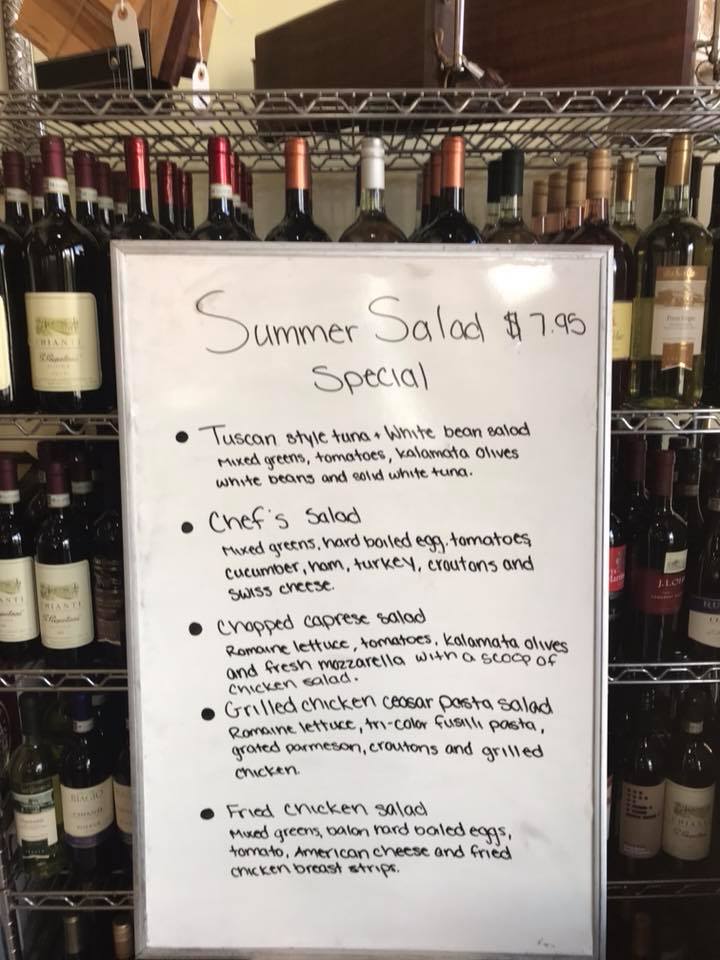 Summer Salad $7.95
Special
• Tuscan style tuna + White bean salad
Mixed greens, tomatoes, kalamata olives
white beans and solid white tuna.
• Chef's Salad
Mixed greens, hard boiled egg, tomatoes,
cucumber, ham, turkey, croutons and
swiss cheese.
• Chopped caprese salad
Romaine lettuce, tomatoes, kalamata olives
and fresh mozzarella with a scoop of
chicken salad.
• Grilled chicken ceasar pasta salad
Romaine lettuce, tri-color fusilli pasta,
grated parmeson, croutons and grilled
chicken.
• Fried chicken salad
Mixed greens, balon hard boiled eggs,
tomato, American cheese and fried
chicken breast strips.
HIANTI
CHIANTI
BIAGIO